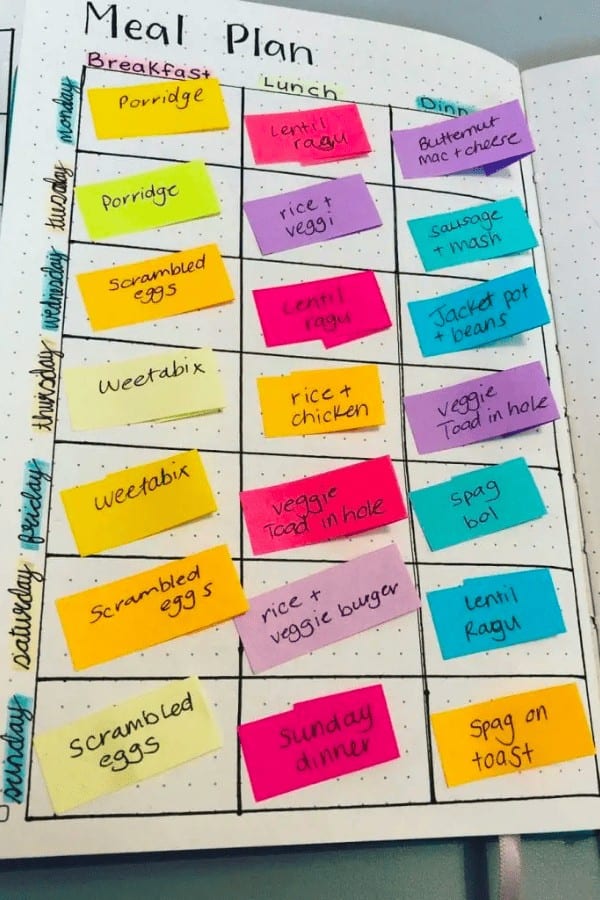 Meal Plan
Breakfast
Lunch
Dinn
monday
Porridge
Lentil
ragu
Butternut
mac + cheese
tuesday
Porridge
rice +
veggi
sausage
+ mash
wednesday
Scrambled
eggs
Lentil
ragu
Jacket pot
+ beans
thursday
Weetabix
rice +
chicken
veggie
Toad in hole
friday
Weetabix
veggie
Toad in hole
Spag
bol
saturday
Scrambled
eggs
rice +
veggie burger
Lentil
Ragu
sunday
Scrambled
eggs
Sunday
dinner
Spag on
toast